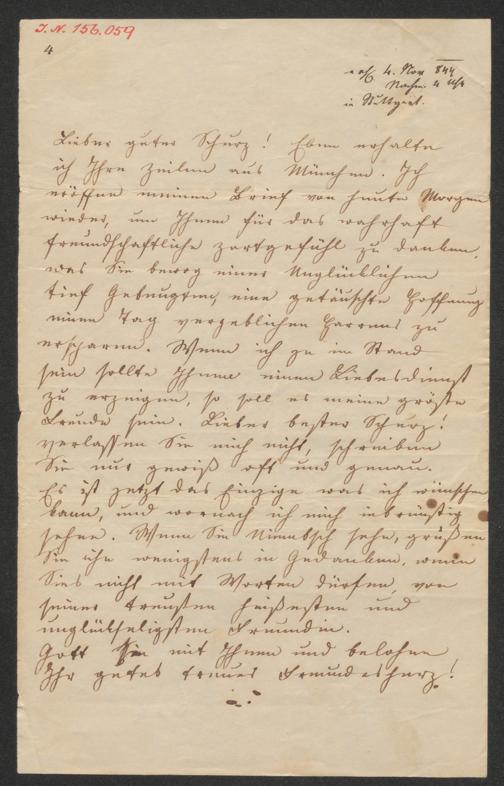 I. N. 156.059
4
4. Nov 844
Nachm. 4 Uhr
in Stuttgart.
Lieber guter Schurz! Eben erhalte
ich Ihre Zeilen aus München. Ich
eröffne meinen Brief von heute Morgen
wieder, um Ihnen für das wahrhaft
freundschaftliche Zartgefühl zu danken,
was Sie bewog einer Unglücklichen
tief Gebeugten, eine getäuschte Hoffnung
einen Tag vergeblichen Harrens zu
ersparen. Wenn ich je im Stand
sein sollte Ihnen einen Liebesdienst
zu erzeigen, so soll es meine größte
Freude sein. Lieber bester Schurz!
verlassen Sie mich nicht, schreiben
Sie nur gewiß oft und genau.
Es ist jetzt das Einzige was ich wünschen
kann, und wornach ich mich inbrünstig
sehne. Wenn Sie Niembsch sehn, grüßen
Sie ihn wenigstens in Gedanken, wenn
Sies nicht mit Worten dürfen, von
seiner treusten heißesten und
unglückseligsten Freundin.
Gott sei mit Ihnen und belohne
Ihr gutes treues Freundesherz!